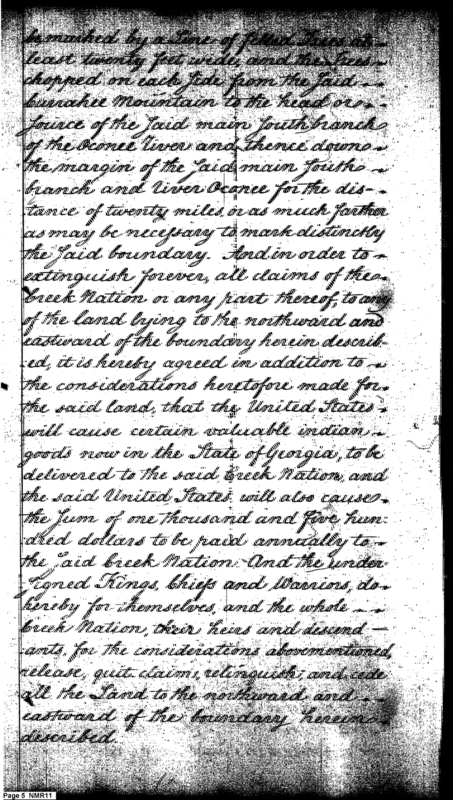 be marked by a Line of felled Trees at
least twenty feet wide, and the trees
chopped on each side from the said
Currahee Mountain to the head or
source of the said main south branch
of the Oconee River and thence down
the margin of the said main south
branch and River Oconee for the dis-
tance of twenty miles, or as much farther
as may be necessary to mark distinctly
the said boundary. And in order to
extinguish forever, all claims of the
Creek Nation or any part thereof, to any
of the land lying to the northward and
eastward of the boundary herein describ-
ed, it is hereby agreed in addition to
the considerations heretofore made for
the said land, that the United States
will cause certain valuable indian
goods now in the State of Georgia, to be
delivered to the said Creek Nation, and
the said United States will also cause
the sum of one thousand and five hun-
dred dollars to be paid annually to
the said Creek Nation. And the under
signed Kings, Chiefs and Warriors, do
hereby for themselves, and the whole
Creek Nation, their heirs and descend
ants, for the considerations abovementioned,
release, quit claim, relinquish, and cede
all the Land to the northward and
eastward of the boundary herein
described.
Page 5 NMR11